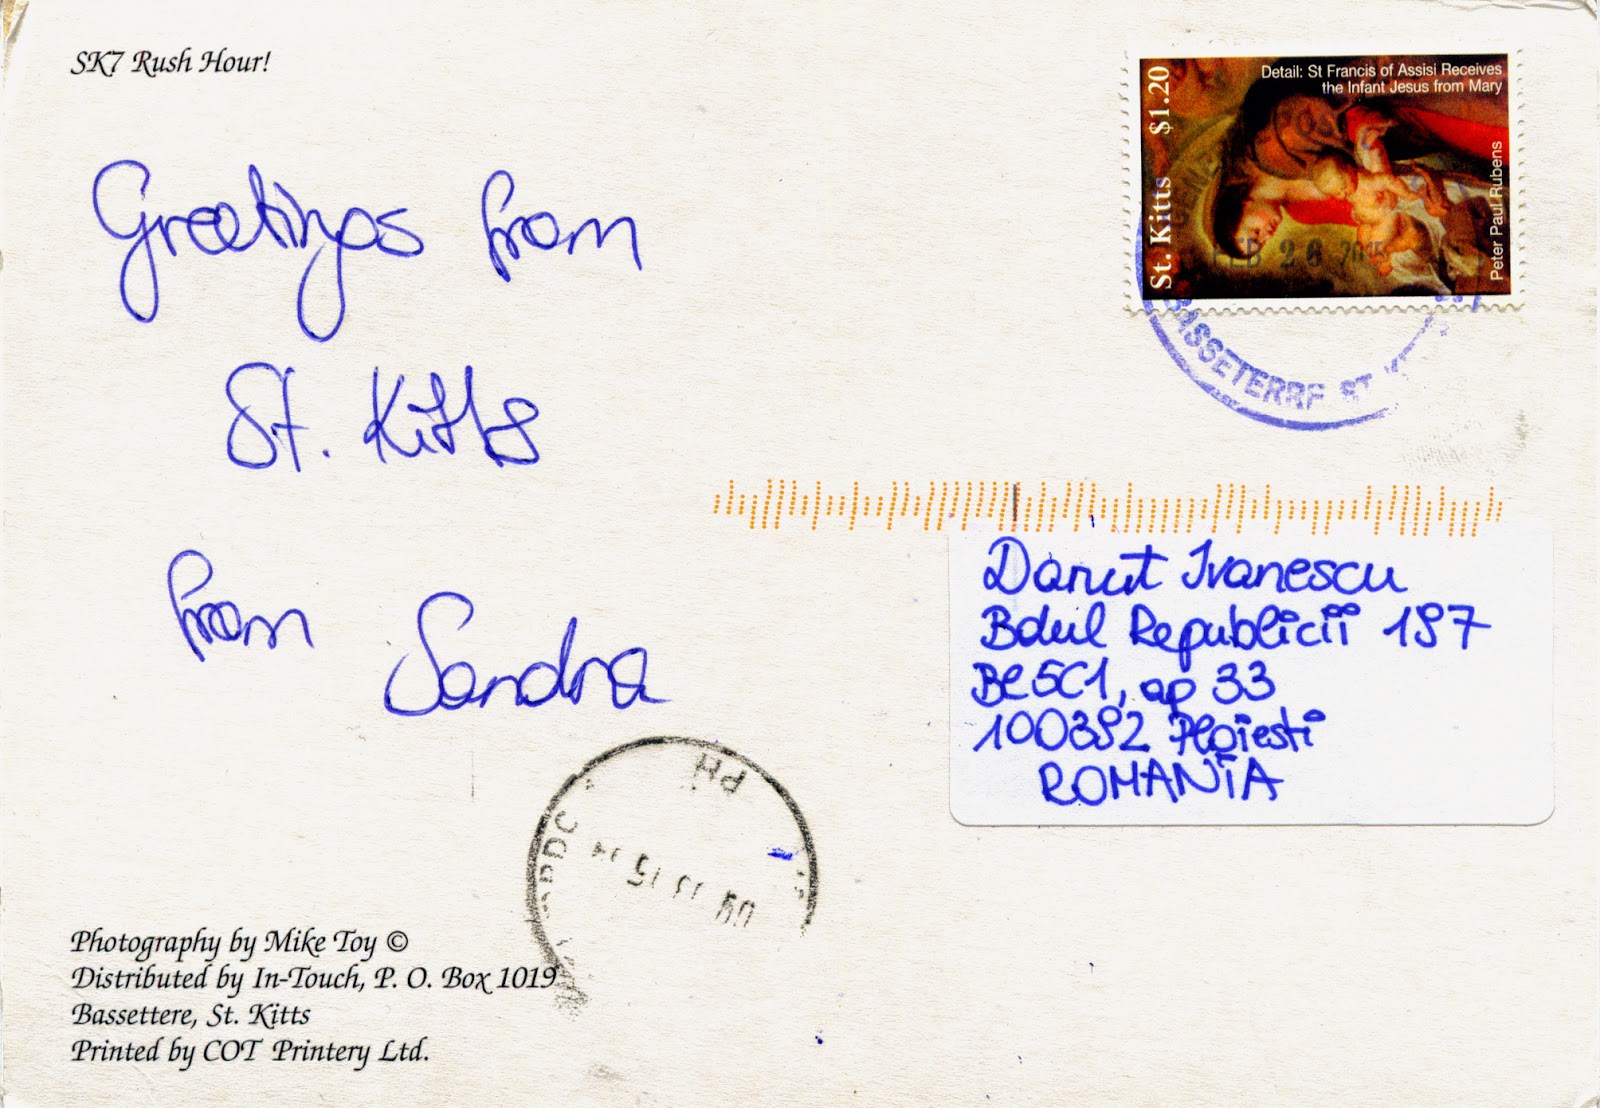 SK7 Rush Hour!
Greetings from
St. Kitts
from Sandra
Photography by Mike Toy ©
Distributed by In-Touch, P. O. Box 1019
Bassettere, St. Kitts
Printed by COT Printery Ltd.
St. Kitts $1.20
Detail: St Francis of Assisi Receives
the Infant Jesus from Mary
Peter Paul Rubens
FEB 26 2015
BASSETERRE ST
Danut Ivanescu
Bdul Republicii 197
Bl 5C1, ap 33
100392 Ploiesti
ROMANIA
PH